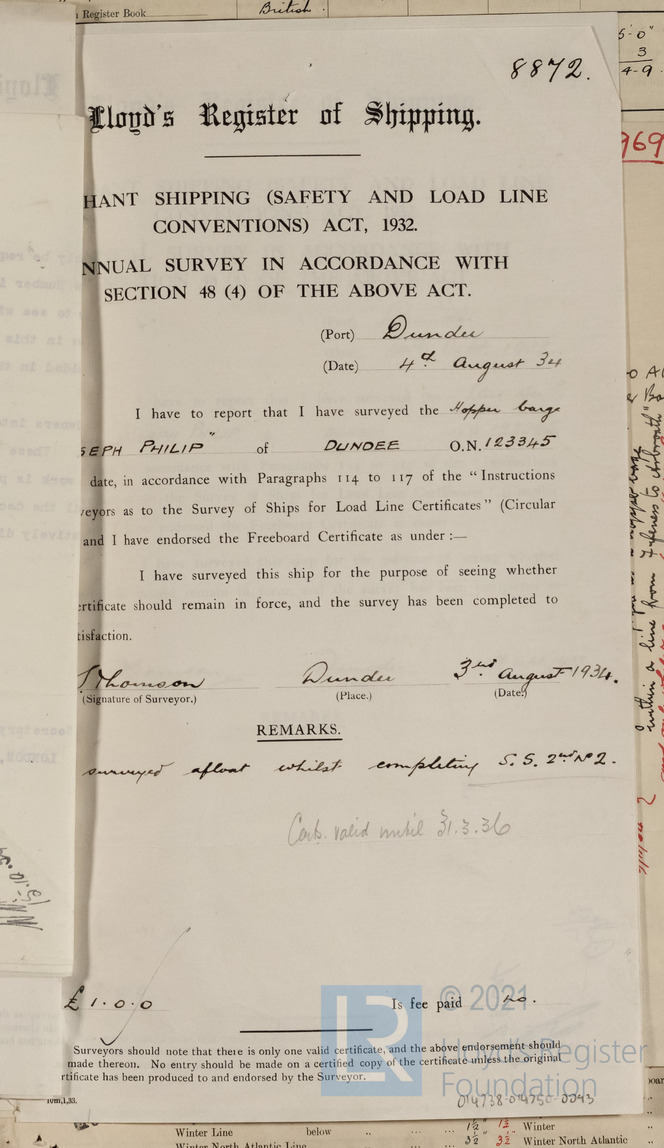 Register Book
British.
5-0"
3
4-9
8872.
Lloyd's Register of Shipping.
969
HANT SHIPPING (SAFETY AND LOAD LINE
CONVENTIONS) ACT, 1932.
NNUAL SURVEY IN ACCORDANCE WITH
SECTION 48 (4) OF THE ABOVE ACT.
(Port) Dundee
(Date) 4th August 34
I have to report that I have surveyed the Hopper barge
SEPH PHILIP" of DUNDEE O.N. 123345
date, in accordance with Paragraphs 114 to 117 of the "Instructions
veyors as to the Survey of Ships for Load Line Certificates" (Circular
and I have endorsed the Freeboard Certificate as under :—
I have surveyed this ship for the purpose of seeing whether
rtificate should remain in force, and the survey has been completed to
tisfaction.
Thomson Dundee 3rd August 1934.
(Signature of Surveyor.) (Place.) (Date.)
REMARKS.
surveyed afloat whilst completing S.S. 2nd No 2.
Cert. valid until 31.3.36
£1.0.0 Is fee paid no.
© 2021
Lloyd's Register
Foundation
Surveyors should note that there is only one valid certificate, and the above endorsement should
made thereon. No entry should be made on a certified copy of the certificate unless the original
rtificate has been produced to and endorsed by the Surveyor.
014738-014750-0043
10m,1,33.
Winter Line below .. .. ... 1½ " 1½ Winter
Winter North Atlantic Line 3½ 3½ Winter North Atlantic